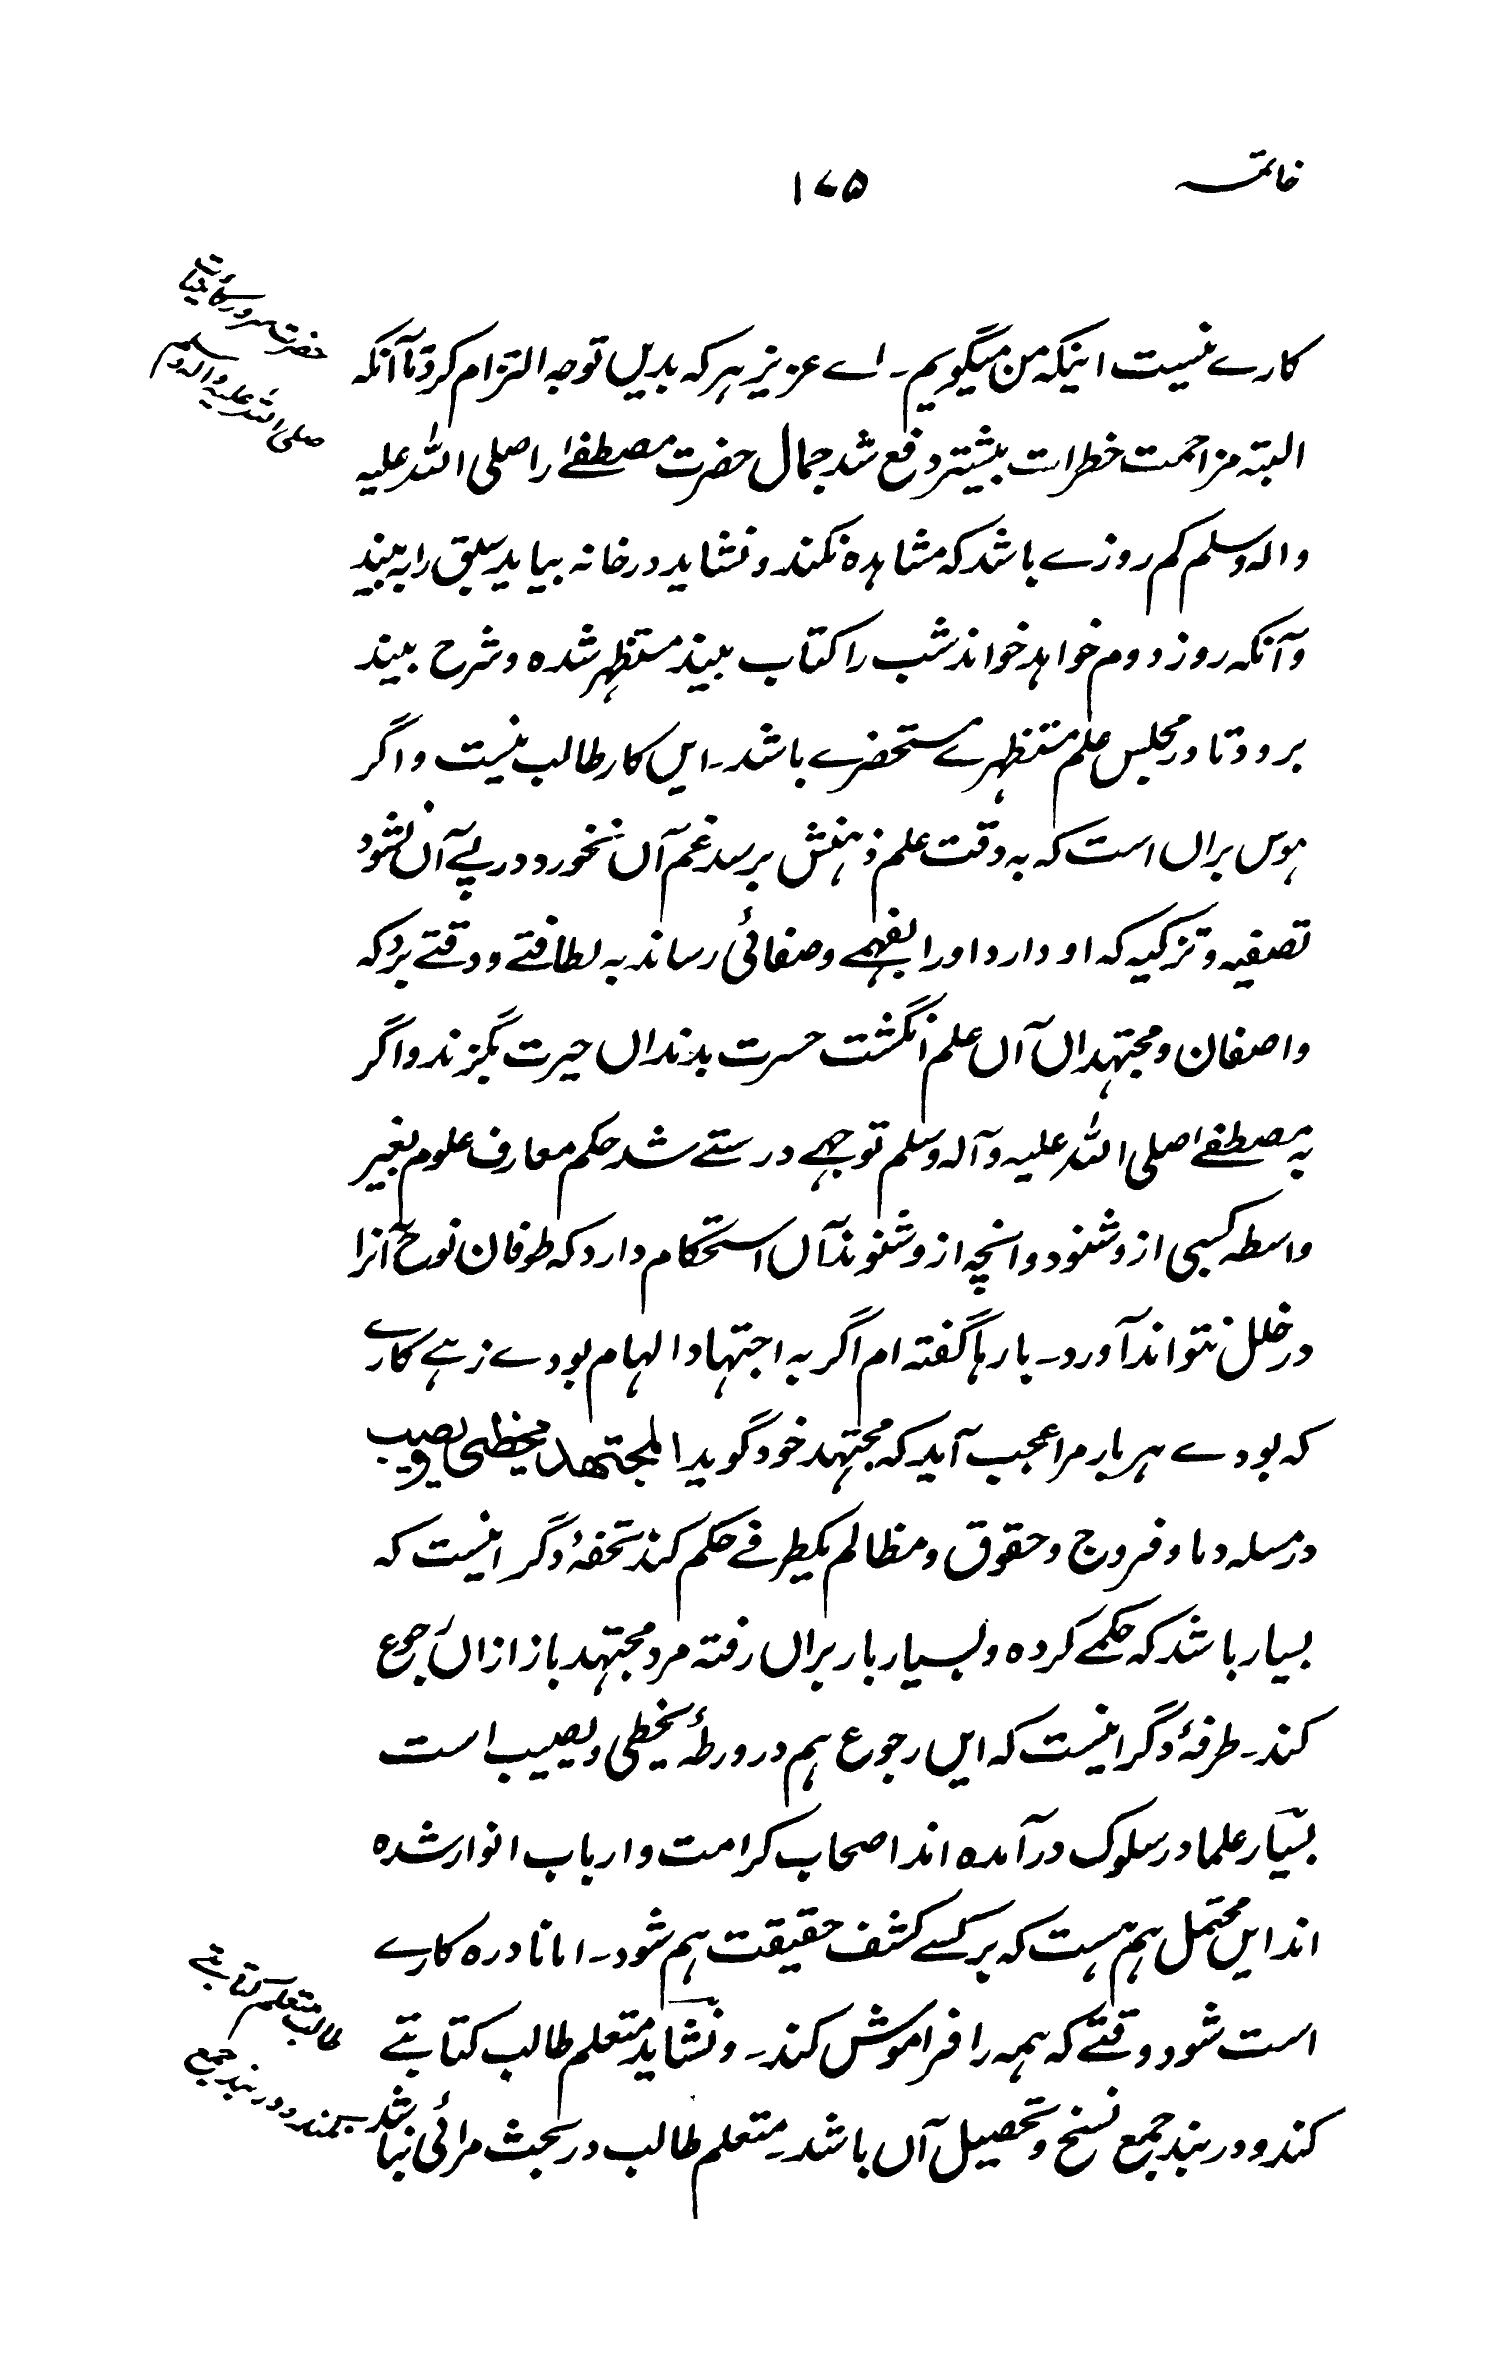 خاتمہ
۱۷۵
حضرت سرور کائنات
صلی اللہ علیہ و آلہ وسلم
کارے نیست اینکہ من میگویم ۔ اے عزیز ہر کہ بدیں توجہ التزام کرد تا آنکہ
البتہ مزاحمت خطرات بیشتر دفع شد جمال حضرت مصطفےٰ را صلی اللہ علیہ
والہ وسلم کم روزے باشد کہ مشاہدہ نکند و نشاید در خانہ بیاید سبق را بہ بیند
و آنکہ روز دوم خواہد خواند شب را کتاب بیند مستظہر شدہ و شرح بیند
برود تا در مجلس علم مستظہرے مستحضرے باشد ۔ ایں کار طالب نیست و اگر
ہوس براں است کہ بہ دقت علم ذہنش برسد غم آں نخورد در پے آں نشود
تصفیہ و تزکیہ کہ او دارد او را بفہمے وصفائی رساند بہ لطافتے و دقتے برد کہ
واصفان و مجتہداں آں علم انگشت حسرت بدنداں حیرت بگزند و اگر
بہ مصطفےٰ صلی اللہ علیہ و آلہ وسلم توجہے درستے شد حکم معارف علوم بغیر
واسطہ کسبی ازو شنود و انچہ ازو شنوند آں استحکام دارد کہ طوفان نوح آنرا
در خلل نتواند آورد ۔ بارہا گفتہ ام اگر بہ اجتہاد الہام بودے زہے کارے
کہ بودے ہر بار مرا عجب آید کہ مجتہد خود گوید المجتھد یخطی و یصیب
در مسلہ دما و فروج و حقوق و مظالم یکطرفے حکم کند تحفۂ دگر اینست کہ
بسیار باشد کہ حکمے کردہ و بسیار بار براں رفتہ مرد مجتہد باز ازاں رجوع
کند ۔ طرفۂ دگر اینست کہ ایں رجوع ہم در ورطۂ یخطی و یصیب است
بسیار علما در سلوک در آمدہ اند اصحاب کرامت و ارباب انوار شدہ
اند ایں محتمل ہم ہست کہ بر کسے کشف حقیقت ہم شود ۔ اما نادرہ کارے
است شود وقتے کہ ہمہ را فراموش کند ۔ و نشاید متعلم طالب کتابتے
کند و در بند جمع نسخ و تحصیل آں باشد ۔ متعلم طالب در بحث مرائی نباشد
طالب متعلم کتابتے
نکند و در بند جمع